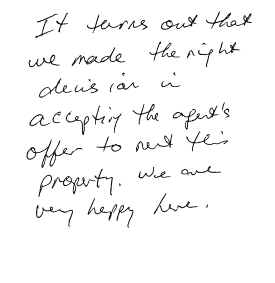 It turns out that
we made the right
decision in
accepting the agent's
offer to rent this
property. We are
very happy here.